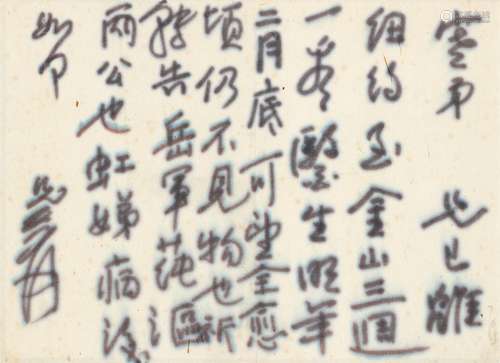 雲弟 兄已離
紐約至金山三週
一看醫生明年
二月底可望全愈
頃仍不見物也祈
轉告岳軍蒓漚
兩公也虹娣病
如何
兄爰